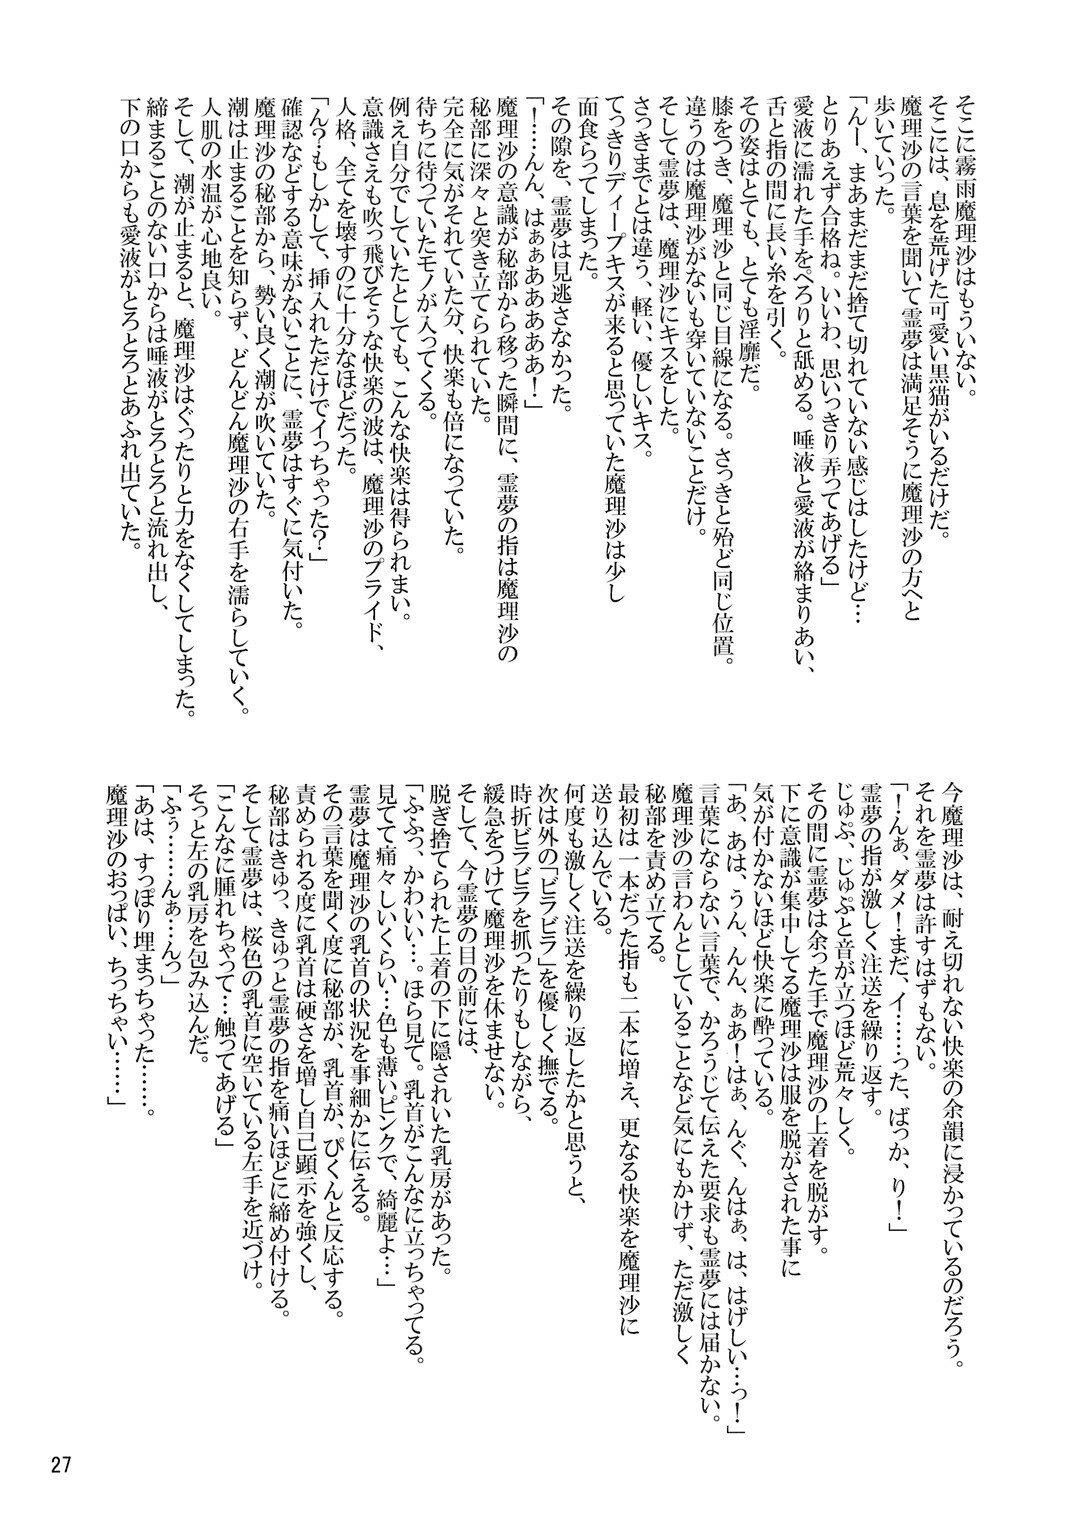 そこに霧雨魔理沙はもういない。
そこには、息を荒げた可愛い黒猫がいるだけだ。
魔理沙の言葉を聞いて霊夢は満足そうに魔理沙の方へと
歩いていった。
「んー、まあまだまだ捨て切れていない感じはしたけど…
とりあえず合格ね。いいわ、思いっきり弄ってあげる」
愛液に濡れた手をぺろりと舐める。唾液と愛液が絡まりあい、
舌と指の間に長い糸を引く。
その姿はとても、とても淫靡だ。
膝をつき、魔理沙と同じ目線になる。さっきと殆ど同じ位置。
違うのは魔理沙がないも穿いていないことだけ。
そして霊夢は、魔理沙にキスをした。
さっきまでとは違う、軽い、優しいキス。
てっきりディープキスが来ると思っていた魔理沙は少し
面食らってしまった。
その隙を、霊夢は見逃さなかった。
「！……んん、はぁぁああああ！」
魔理沙の意識が秘部から移った瞬間に、霊夢の指は魔理沙の
秘部に深々と突き立てられていた。
完全に気がそれていた分、快楽も倍になっていた。
待ちに待っていたモノが入ってくる。
例え自分でしていたとしても、こんな快楽は得られまい。
意識さえも吹っ飛びそうな快楽の波は、魔理沙のプライド、
人格、全てを壊すのに十分なほどだった。
「ん？もしかして、挿入れただけでイっちゃった？」
確認などする意味がないことに、霊夢はすぐに気付いた。
魔理沙の秘部から、勢い良く潮が吹いていた。
潮は止まることを知らず、どんどん魔理沙の右手を濡らしていく。
人肌の水温が心地良い。
そして、潮が止まると、魔理沙はぐったりと力をなくしてしまった。
締まることのない口からは唾液がとろとろと流れ出し、
下の口からも愛液がとろとろとあふれ出ていた。
今魔理沙は、耐え切れない快楽の余韻に浸かっているのだろう。
それを霊夢は許すはずもない。
「！んぁ、ダメ！まだ、イ……った、ばっか、り！」
霊夢の指が激しく注送を繰り返す。
じゅぷ、じゅぷと音が立つほど荒々しく。
その間に霊夢は余った手で魔理沙の上着を脱がす。
下に意識が集中してる魔理沙は服を脱がされた事に
気が付かないほど快楽に酔っている。
「あ、あは、うん、んん、ぁあ！はぁ、んぐ、んはぁ、は、はげしい…っ！」
言葉にならない言葉で、かろうじて伝えた要求も霊夢には届かない。
魔理沙の言わんとしていることなど気にもかけず、ただ激しく
秘部を責め立てる。
最初は一本だった指も二本に増え、更なる快楽を魔理沙に
送り込んでいる。
何度も激しく注送を繰り返したかと思うと、
次は外の「ビラビラ」を優しく撫でる。
時折ビラビラを抓ったりもしながら、
緩急をつけて魔理沙を休ませない。
そして、今霊夢の目の前には、
脱ぎ捨てられた上着の下に隠されいた乳房があった。
「ふふっ、かわいい…。ほら見て。乳首がこんなに立っちゃってる。
見てて痛々しいくらい…色も薄いピンクで、綺麗よ…」
霊夢は魔理沙の乳首の状況を事細かに伝える。
その言葉を聞く度に秘部が、乳首が、ぴくんと反応する。
責められる度に乳首は硬さを増し自己顕示を強くし、
秘部はきゅっ、きゅっと霊夢の指を痛いほどに締め付ける。
そして霊夢は、桜色の乳首に空いている左手を近づけ。
「こんなに腫れちゃって…触ってあげる」
そっと左の乳房を包み込んだ。
「ふぅ……んぁ…んっ」
「あは、すっぽり埋まっちゃった……。
魔理沙のおっぱい、ちっちゃい……」
27